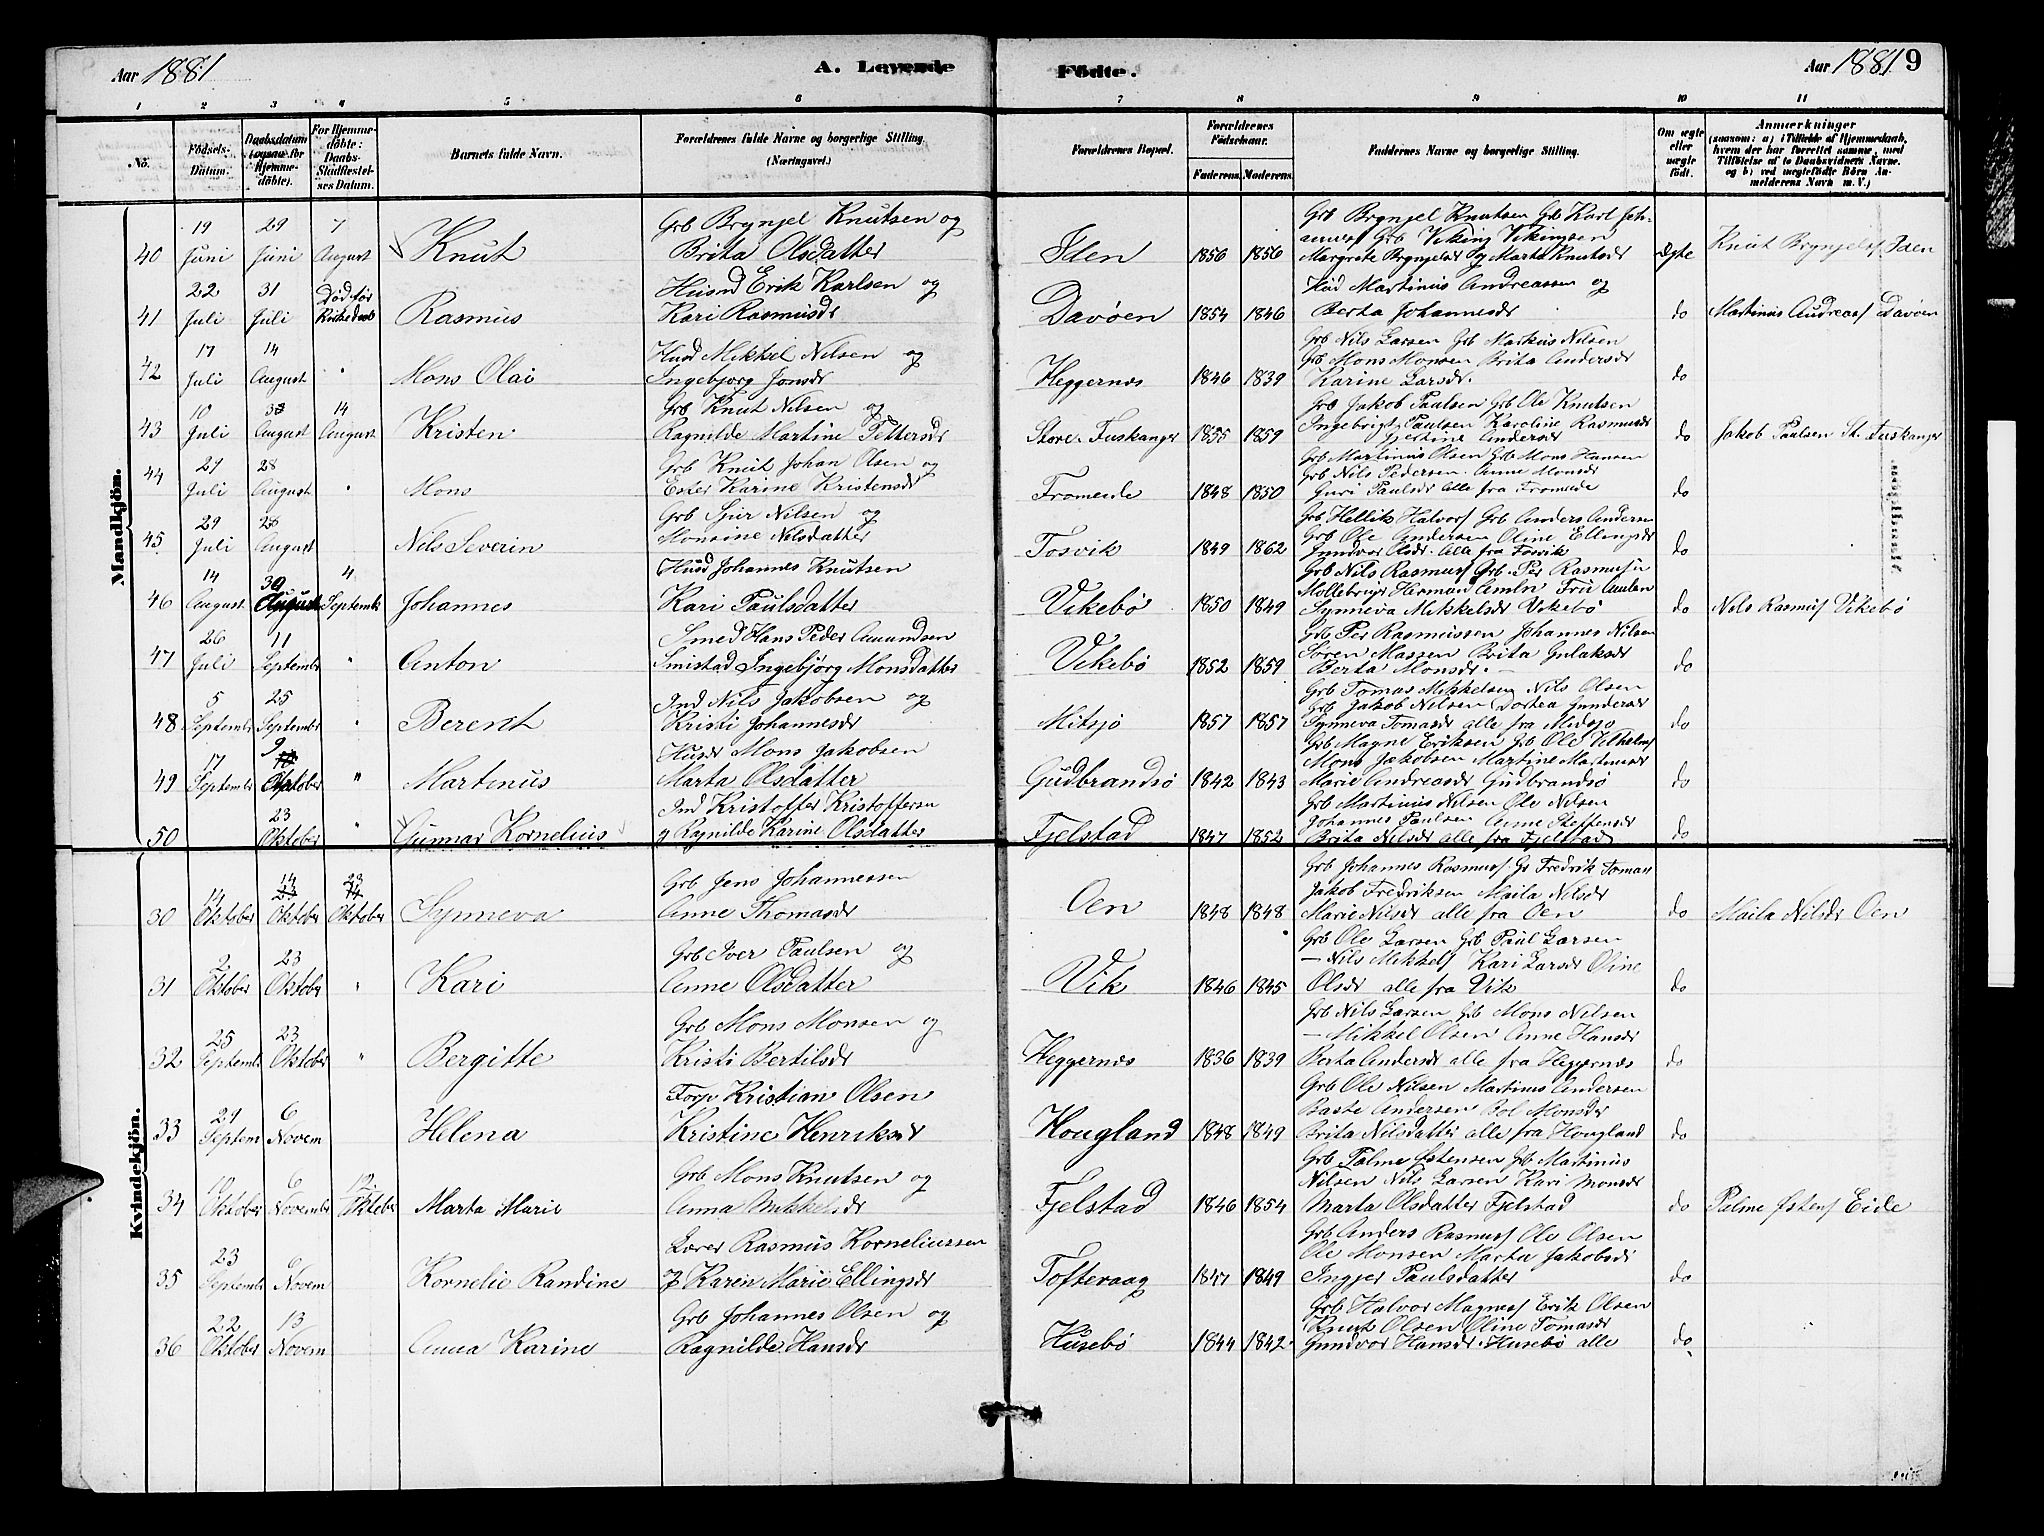 Aar 1881
A. Levende
Födte.
Aar 1881
9
1 2 3 4 5 6 7 8 9 10 11
No.
Födsels-Datum.
Daabsdatum (ogsaa for Hjemmedöbte).
For Hjemmedöbte: Daabs-Stadfæstelses Datum.
Barnets fulde Navn.
Forældrenes fulde Navne og borgerlige Stilling. (Næringsvei.)
Forældrenes Bopæl.
Forældrenes Födselsaar.
Faderens. Moderens.
Faddernes Navne og borgerlige Stilling.
Om ægte eller uægte födt.
Anmærkninger
(saasom: a) i Tilfælde af Hjemmedaab, hvem der har forrettet samme, med Tilföielse af to Daabsvidners Navne. og b) ved uægtefödte Börn Anmelderens Navn m. V.)
Mandkjön.
40 19 Juni 29 Juni 7 August Knut
Grb Brynjel Knutsen og
Brita Olsdatter
Iden 1856 1856
Grb Brynjel Knutsen Grb Karl Joh-
annes Grb Viking Vikingsen
Margrete Brynjelsdr og Marta Knutsdr
ægte Knut Brynjels Iden
41 22 Juli 31 Juli Död för Kirkedaab Rasmus
Husmd Erik Karlsen og
Kari Rasmusdr
Davøen 1854 1846
Husd Martinus Andreassen og
Berta Johannesdr
do Martinus Andreas Davøen
42 17 Juli 14 August " Mons Olai
Husd Mikkel Nilsen og
Ingebjorg Jonsdr
Heggernes 1846 1839
Grb Nils Larsen Grb Markus Nilsen
Grb Mons Monsen Brita Andersdr
Karine Larsdr.
do
43 10 Juli August 14 August Kristen
Grb Knut Nilsen og
Ragnilde Martine Pettersdr
Store-Fuskanger 1855 1859
Grb Jakob Paulsen Grb Ole Knutsen
Ingebrigt Paulsen Karoline Rasmusdr
Gjertine Andersdr
do Jakob Paulsen St. Fuskanger
44 29 Juli 28 August " Mons
Grb Knut Johan Olsen og
Ester Karine Kristensdr
Fromreide 1848 1850
Grb Martinus Olsen Grb Mons Hansen
Grb Nils Pedersen. Anne Monsdr
Guri Paulsdr alle fra Fromreide
do
45 29 Juli 28 August Nils Severin
Grb Sjur Nilsen og
Monsine Nilsdatter
Tosvik 1849 1862
Grb Hellik Halvors Grb Anders Andersen
Grb Ole Andersen Oline Ellingsdr
Gundvor Olsdr. Alle fra Tosvik
do
46 14 August 30 August 4 Septemb Johannes
Husd Johannes Knutsen
Kari Paulsdatter
Vikebø 1850 1849
Grb Nils Rasmus Grb. Per Rasmus
Herman
Synneva Mikkelsdr Vikebø
do Nils Rasmus Vikebø
47 26 Juli 11 Septembr " Anton
Smed Hans Peder Amundsen
Smistad Ingebjörg Monsdatter
Vikebø 1852 1859
Grb Per Rasmussen Johannes Nilsen
Søren Massen Brita Gulaksdr
Berta Monsdr.
do
48 5 Septembr 25 Septembr " Berent
Ind Nils Jakobsen og
Kristi Johannesdr
Mitsjo 1857 1857
Grb Tomas Mikkelsen Nils Olsen
Grb Jakob Nilsen Dortea Gundersdr
Synneva Tomasdr alle fra Midsjo
do
49 17 Septembr 9 Oktober " Martinus
Husdr Mons Jakobsen
Marta Olsdatter
Gudbrandsø 1842 1843
Grb Magne Eriksen Grb Ole Vilhelms
Mons Jakobsen Martine Martinusdr
Marie Andreasdr Gudbrandsø
do
50 23 Oktober " Gunnar Kornelius
Ind Kristoffer Kristoffersen
og Ragnilde Karine Olsdatter
Fjelstad 1847 1852
Grb Martinus Nilsen Ole Nilsen
Johannes Paulsen Anne Steffensdr
Brita Nilsdr alle fra Fjelstad
do
Kvindekjön.
30 14 Oktober 14 Oktober 23 Oktober Synneva
Grb Jens Johannessen
Anne Thomasdr
Oen 1848 1848
Grb Johannes Rasmus Gr Fredrik Tomas
Jakob Fredriksen Maila Nilsdr
Marie Nilsdr alle fra Oen
do Maila Nilsdr Oen
31 2 Oktober 23 Oktober " Kari
Grb Iver Paulsen og
Anne Olsdatter
Vik 1846 1845
Grb Ole Larsen Grb Paul Larsen
— Nils Mikkels Kari Larsdr Oline
Olsdr alle fra Vik
do
32 25 Septembr 23 Oktober " Bergitte
Grb Mons Monsen og
Kristi Bertilsdr
Heggernes 1836 1839
Grb Nils Larsen Grb Mons Nilsen
— Mikkel Olsen Anne Hansdr
Berta Andersdr alle fra Heggernes
do
33 29 Septem 6 Novem Helena
Forp Kristian Olsen
Kristine Henriksdr
Hougland 1848 1849
Grb Ole Nilsen Martinus Andersen
Baste Andersen Bol Monsdr
Brita Nilsdatter alle fra Hougland
do
34 10 Oktober 6 Novembr 12 Oktober Marta Marie
Grb Mons Knutsen og
Anna Mikkelsdr
Fjelstad 1846 1854
Grb Palme Østensen Grb Martinus
Nilsen Nils Larsen Kari Monsdr
Marta Olsdatter Fjelstad
do Palme Østens Eide
35 23 Septembr 6 Novem Kornelie Randine
Lærer Rasmus Korneliussen
og Karen Marie Ellingsdr
Tofteraag 1847 1849
Grb Anders Rasmus Ole Olsen
Ole Monsen Marta Jakobsdr
Ingjer Paulsdatter
do
36 22 Oktober 13 Novem Anna Karine
Grb Johannes Olsen og
Ragnilde Hansdr
Husebø 1844 1842
Grb Halvor Magnes Erik Olsen
Knut Olsen Oline Tomasdr
Gundvor Hansdr. Husebø alle
do